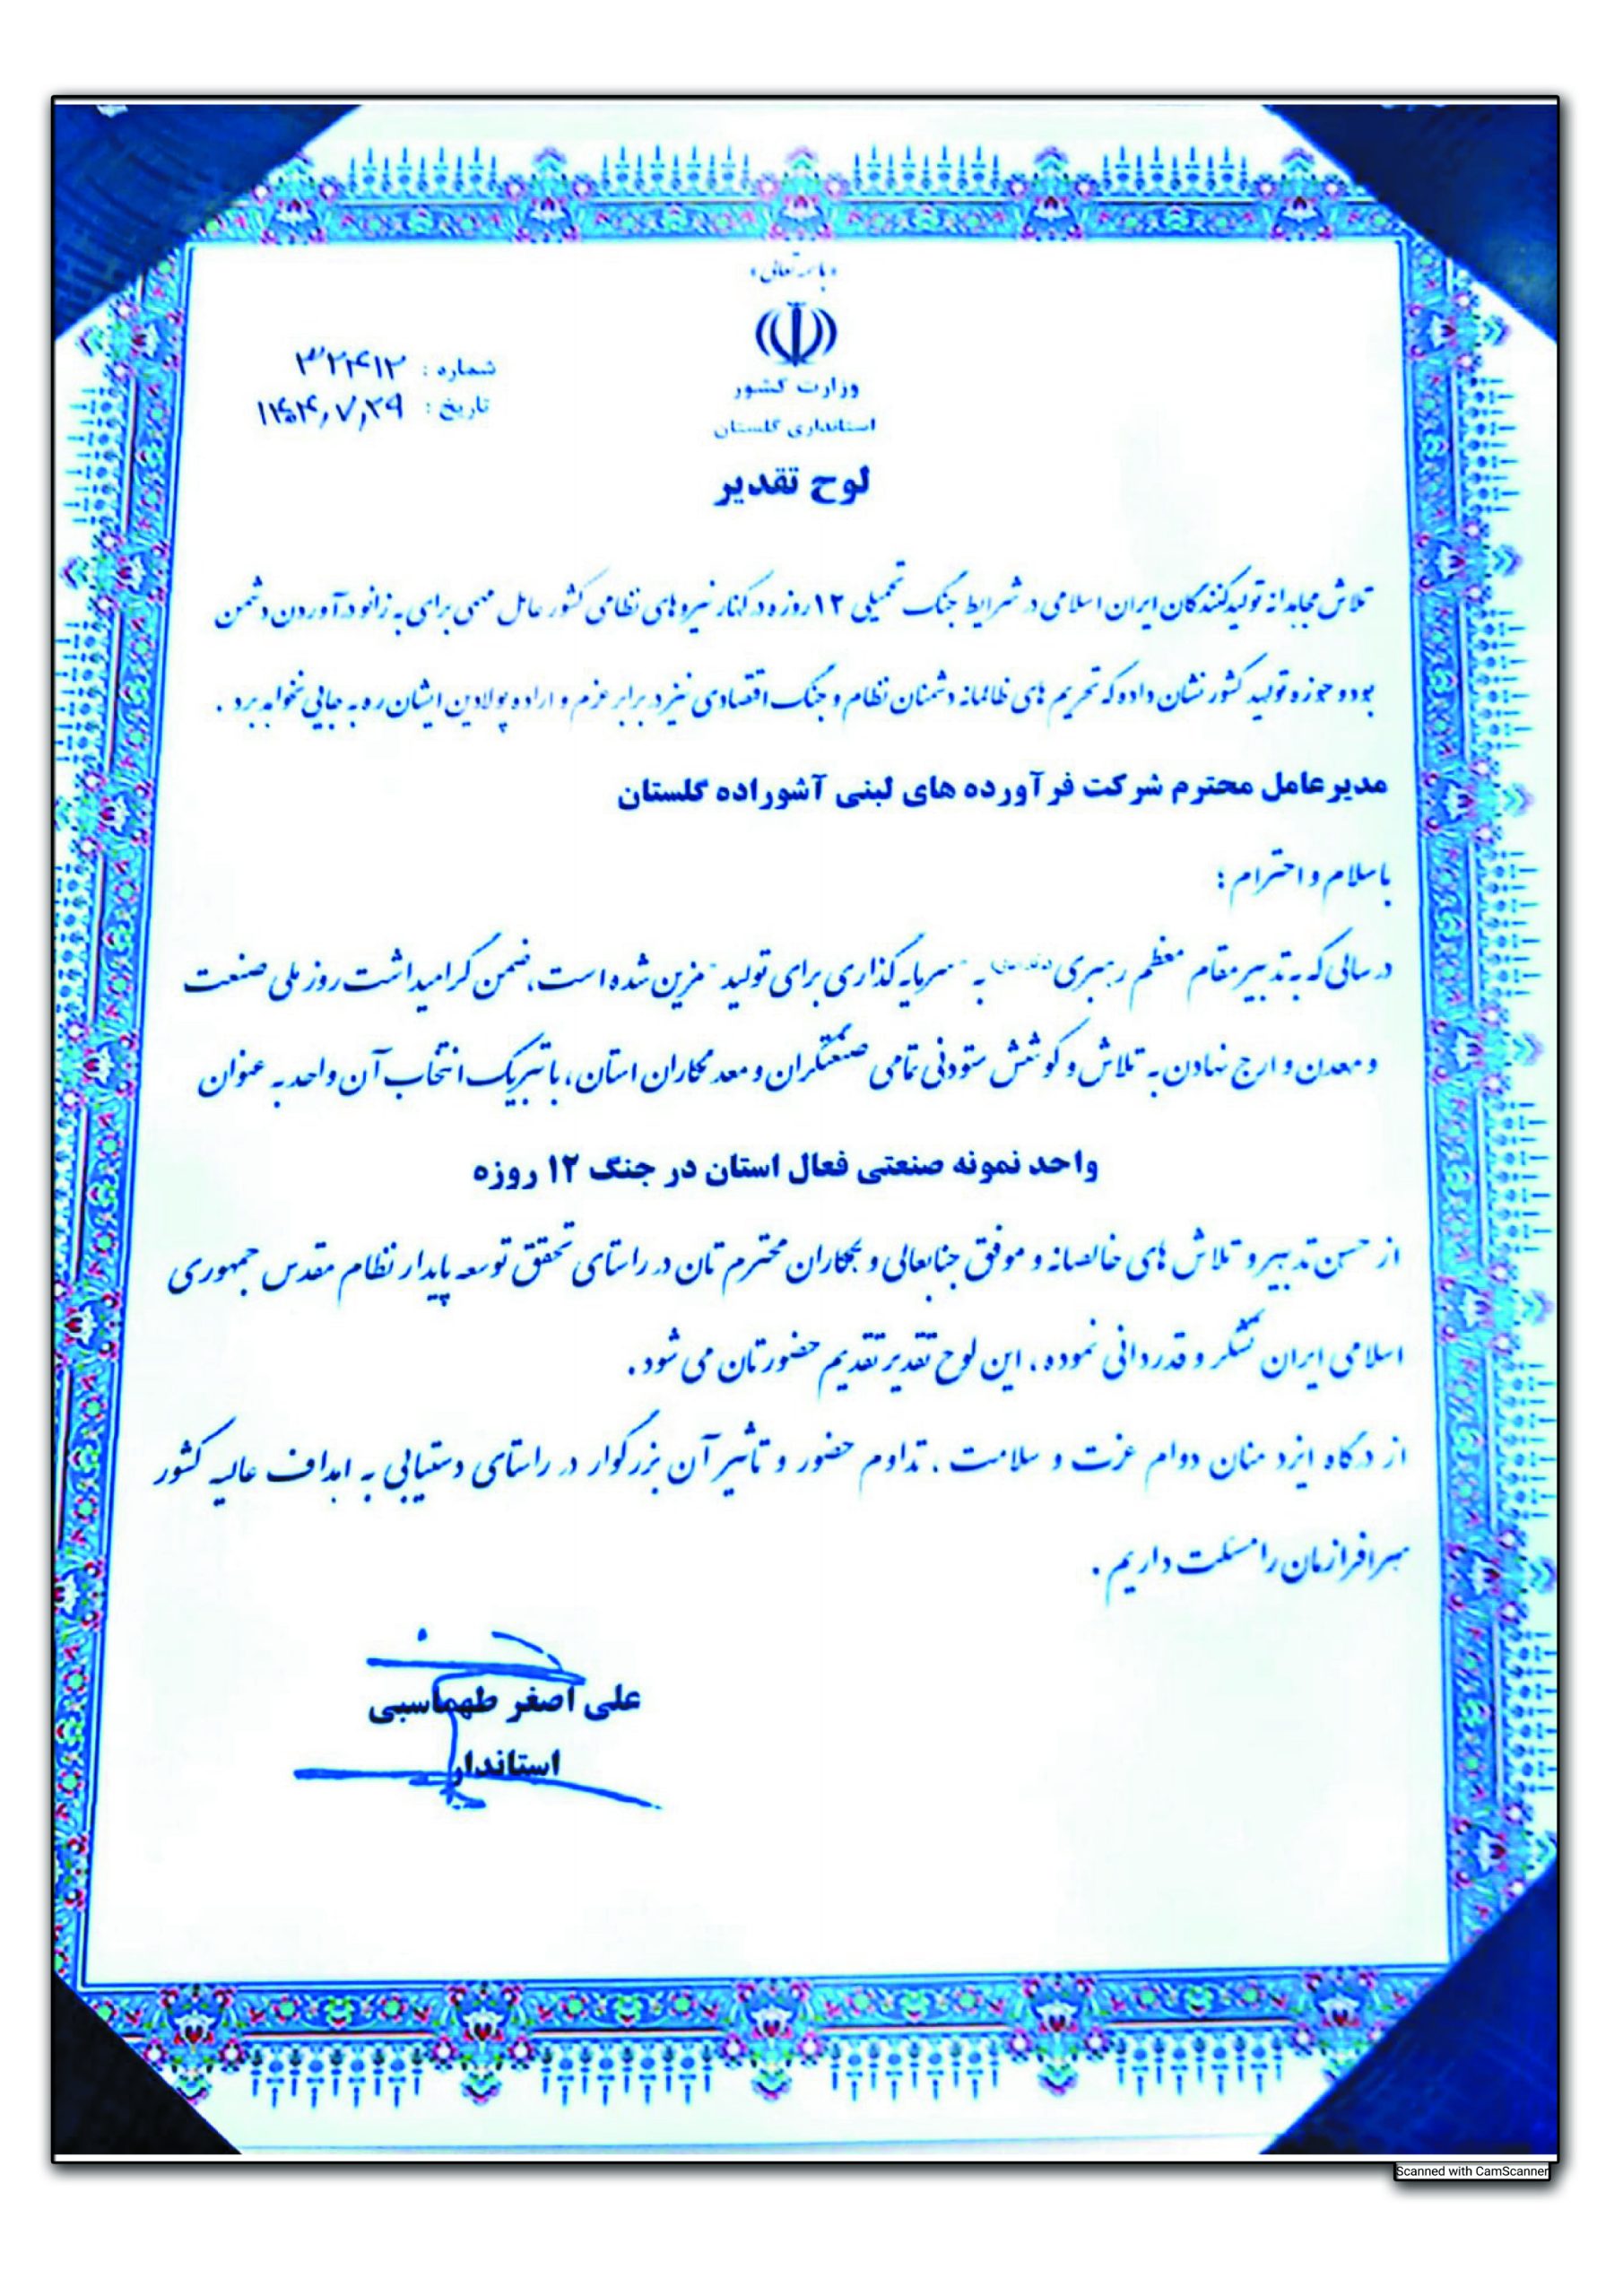 «باسمه تعالی»
وزارت کشور
استانداری گلستان
شماره : ۳۲۴۱۲
تاریخ : ۱۴۰۴,۷,۲۹
لوح تقدیر
تلاش مجاهدانه تولیدکنندگان ایران اسلامی در شرایط جنگ تحمیلی ۱۲ روزه در کنار نیروهای نظامی کشور عامل مهمی برای به زانو درآوردن دشمن
بود و حوزه تولید کشور نشان داده که تحریم های ظالمانه دشمنان نظام و جنگ اقتصادی نیز در برابر عزم و اراده پولادین ایشان ره به جایی نخواهد برد .
مدیرعامل محترم شرکت فرآورده های لبنی آشوراده گلستان
با سلام و احترام ؛
در سالی که به تدبیر مقام معظم رهبری به "سرمایه گذاری برای تولید" مزین شده است، ضمن گرامیداشت روز ملی صنعت
و معدن و ارج نهادن به تلاش و کوشش ستودنی تمامی صنعتگران و معدنکاران استان، با تبریک انتخاب آن واحد به عنوان
واحد نمونه صنعتی فعال استان در جنگ ۱۲ روزه
از حسن تدبیر و تلاش های خالصانه و موفق جنابعالی و همکاران محترم تان در راستای تحقق توسعه پایدار نظام مقدس جمهوری
اسلامی ایران تشکر و قدردانی نموده ، این لوح تقدیر تقدیم حضورتان می شود .
از درگاه ایزد منان دوام عزت و سلامت ، تداوم حضور و تأثیر آن بزرگوار در راستای دستیابی به اهداف عالیه کشور
سرافرازمان را مسئلت داریم .
علی اصغر طهماسبی
استاندار
Scanned with CamScanner